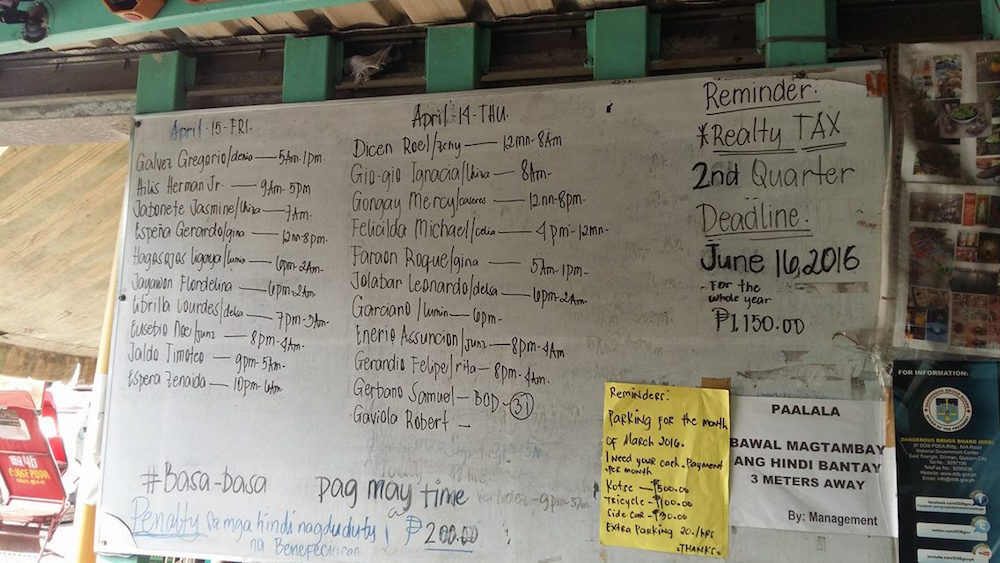 April-15-FRI-
Galvez Gregorio/denio — 5Am-1pm
Atilis Herman Jr. — 9Am-5pm
Jabonete Jasmine/Lhiza — 7Am-
Espeña Gerardo/gina — 12nn-8pm-
Hagasojas Ligaya/lumin — 6pm-2Am-
Jayawon Flordelina — 6pm-2Am-
Librilla Lourdes/delsa — 7pm-3Am-
Eusebio Noe/junz — 8pm-4Am-
Jaldo Timoteo — 9pm-5Am-
Espera Zenaida — 10pm-6Am-
April-14-THU.
Dicen Roel/zchy — 12mn-8Am
Gio-gio Ignacia/Lhiza — 8Am-
Gongay Mercy/caseres — 12nn-8pm-
Felicilda Michael/celia — 4pm-12mn-
Faraon Roque/gina — 5Am-1pm-
Jolabar Leonardo/delsa — 6pm-2Am-
Garciano/lumin — 6pm-
Enerio Assuncion/junz — 8pm-4Am
Gerandio Felipe/rita — 8pm-4Am-
Gerbano Samuel — BOD - 31
Gaviola Robert —
Reminder:
*Realty TAX
2nd Quarter
Deadline:
June 16, 2016
- For the
whole year
₱1,150.00
#Basa-basa pag may time
Penalty sa mga hindi nagduduty ₱ 200.00
na Beneficiries
Reminders:
Parking for the month
of March 2016.
I need your cash-Payment
-Per month
Kotse — ₱500.00
Tricycle — ₱100.00
Side car — ₱30.00
Extra Parking 20./hrs
=THANKS=
PAALALA
BAWAL MAGTAMBAY
ANG HINDI BANTAY
3 METERS AWAY
By: Management
FOR INFORMATION:
DANGEROUS DRUGS BOARD (DDB)
3F DDB-PDEA Bldg., NIA Road
National Government Center
East Triangle, Diliman, Quezon City